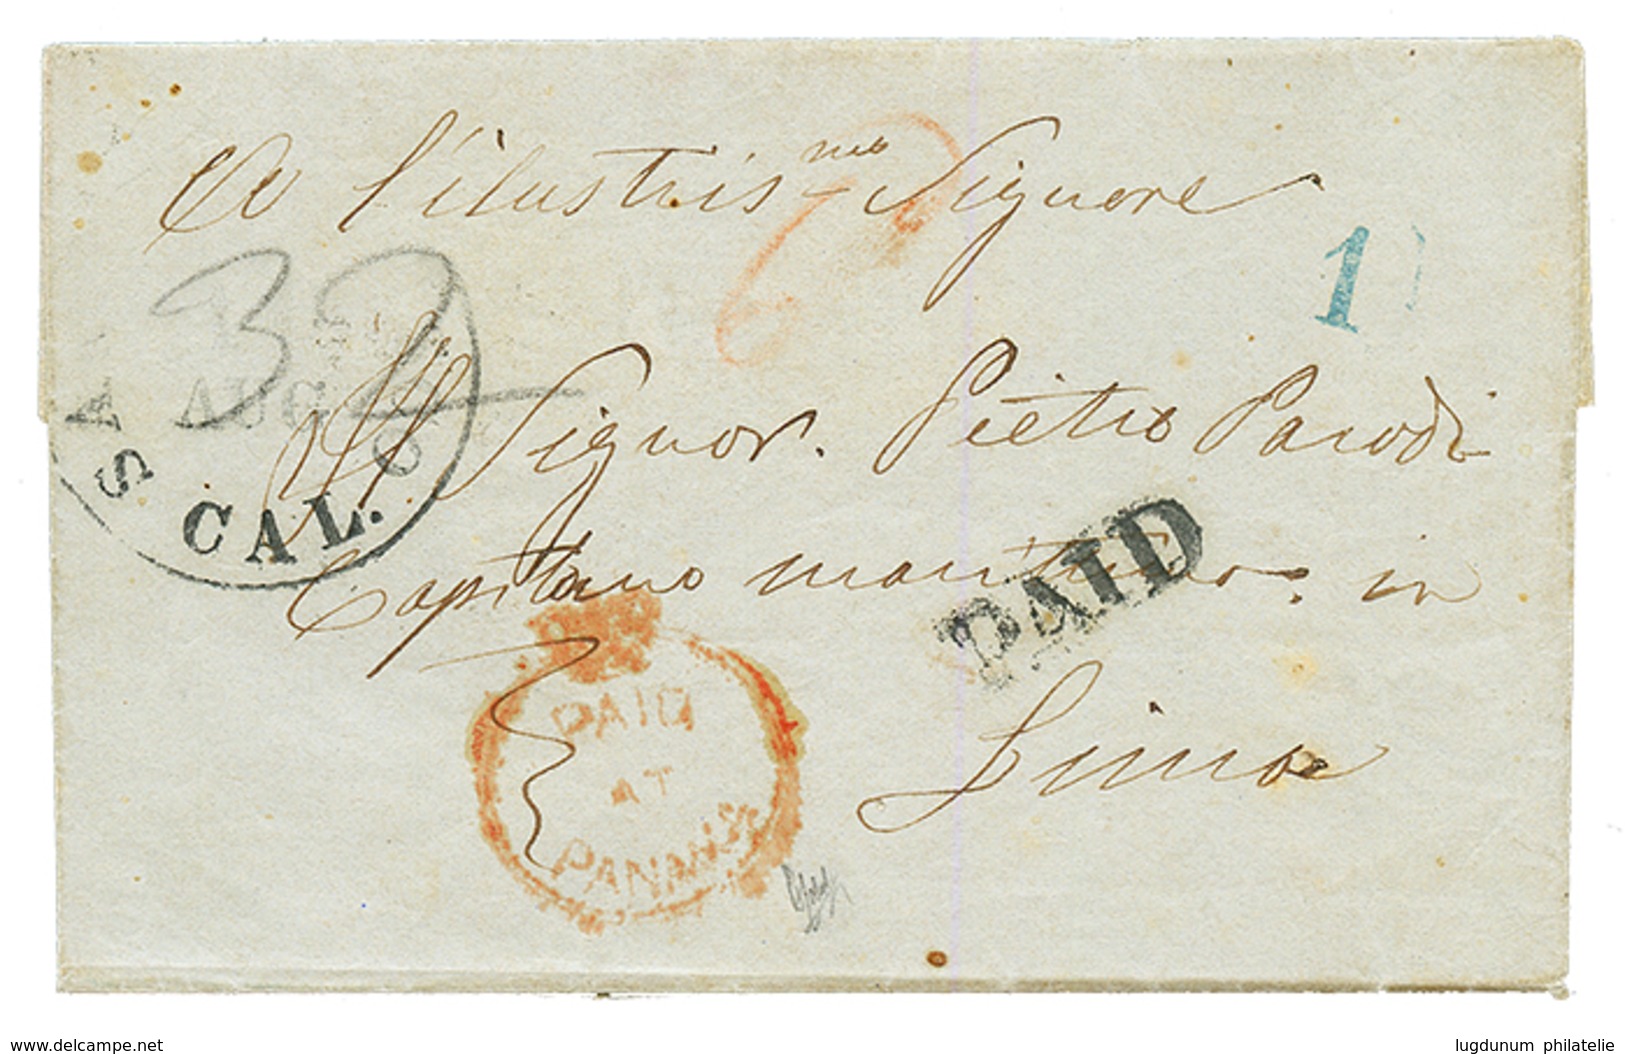 A l'ilustris.mo Signore
1
32
AUG
SA
CAL.
Al Signor. Pietro Parodi
Capitano marittimo. in
PAID
Lima
PAID
AT
PANAMA
delcampe.net
lugdunum philatelie